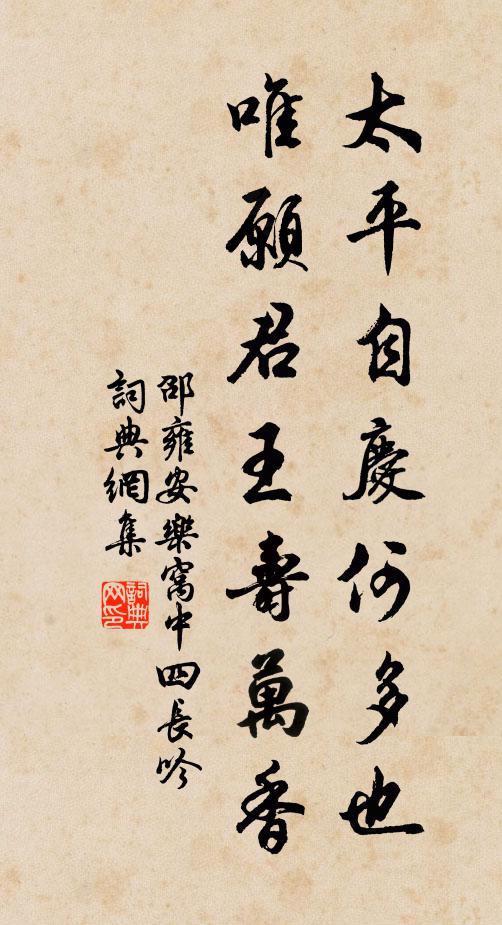 太平自慶何多也
唯願君王壽萬香
邵雍安樂窩中四長吟
詞典網集
詞典網印